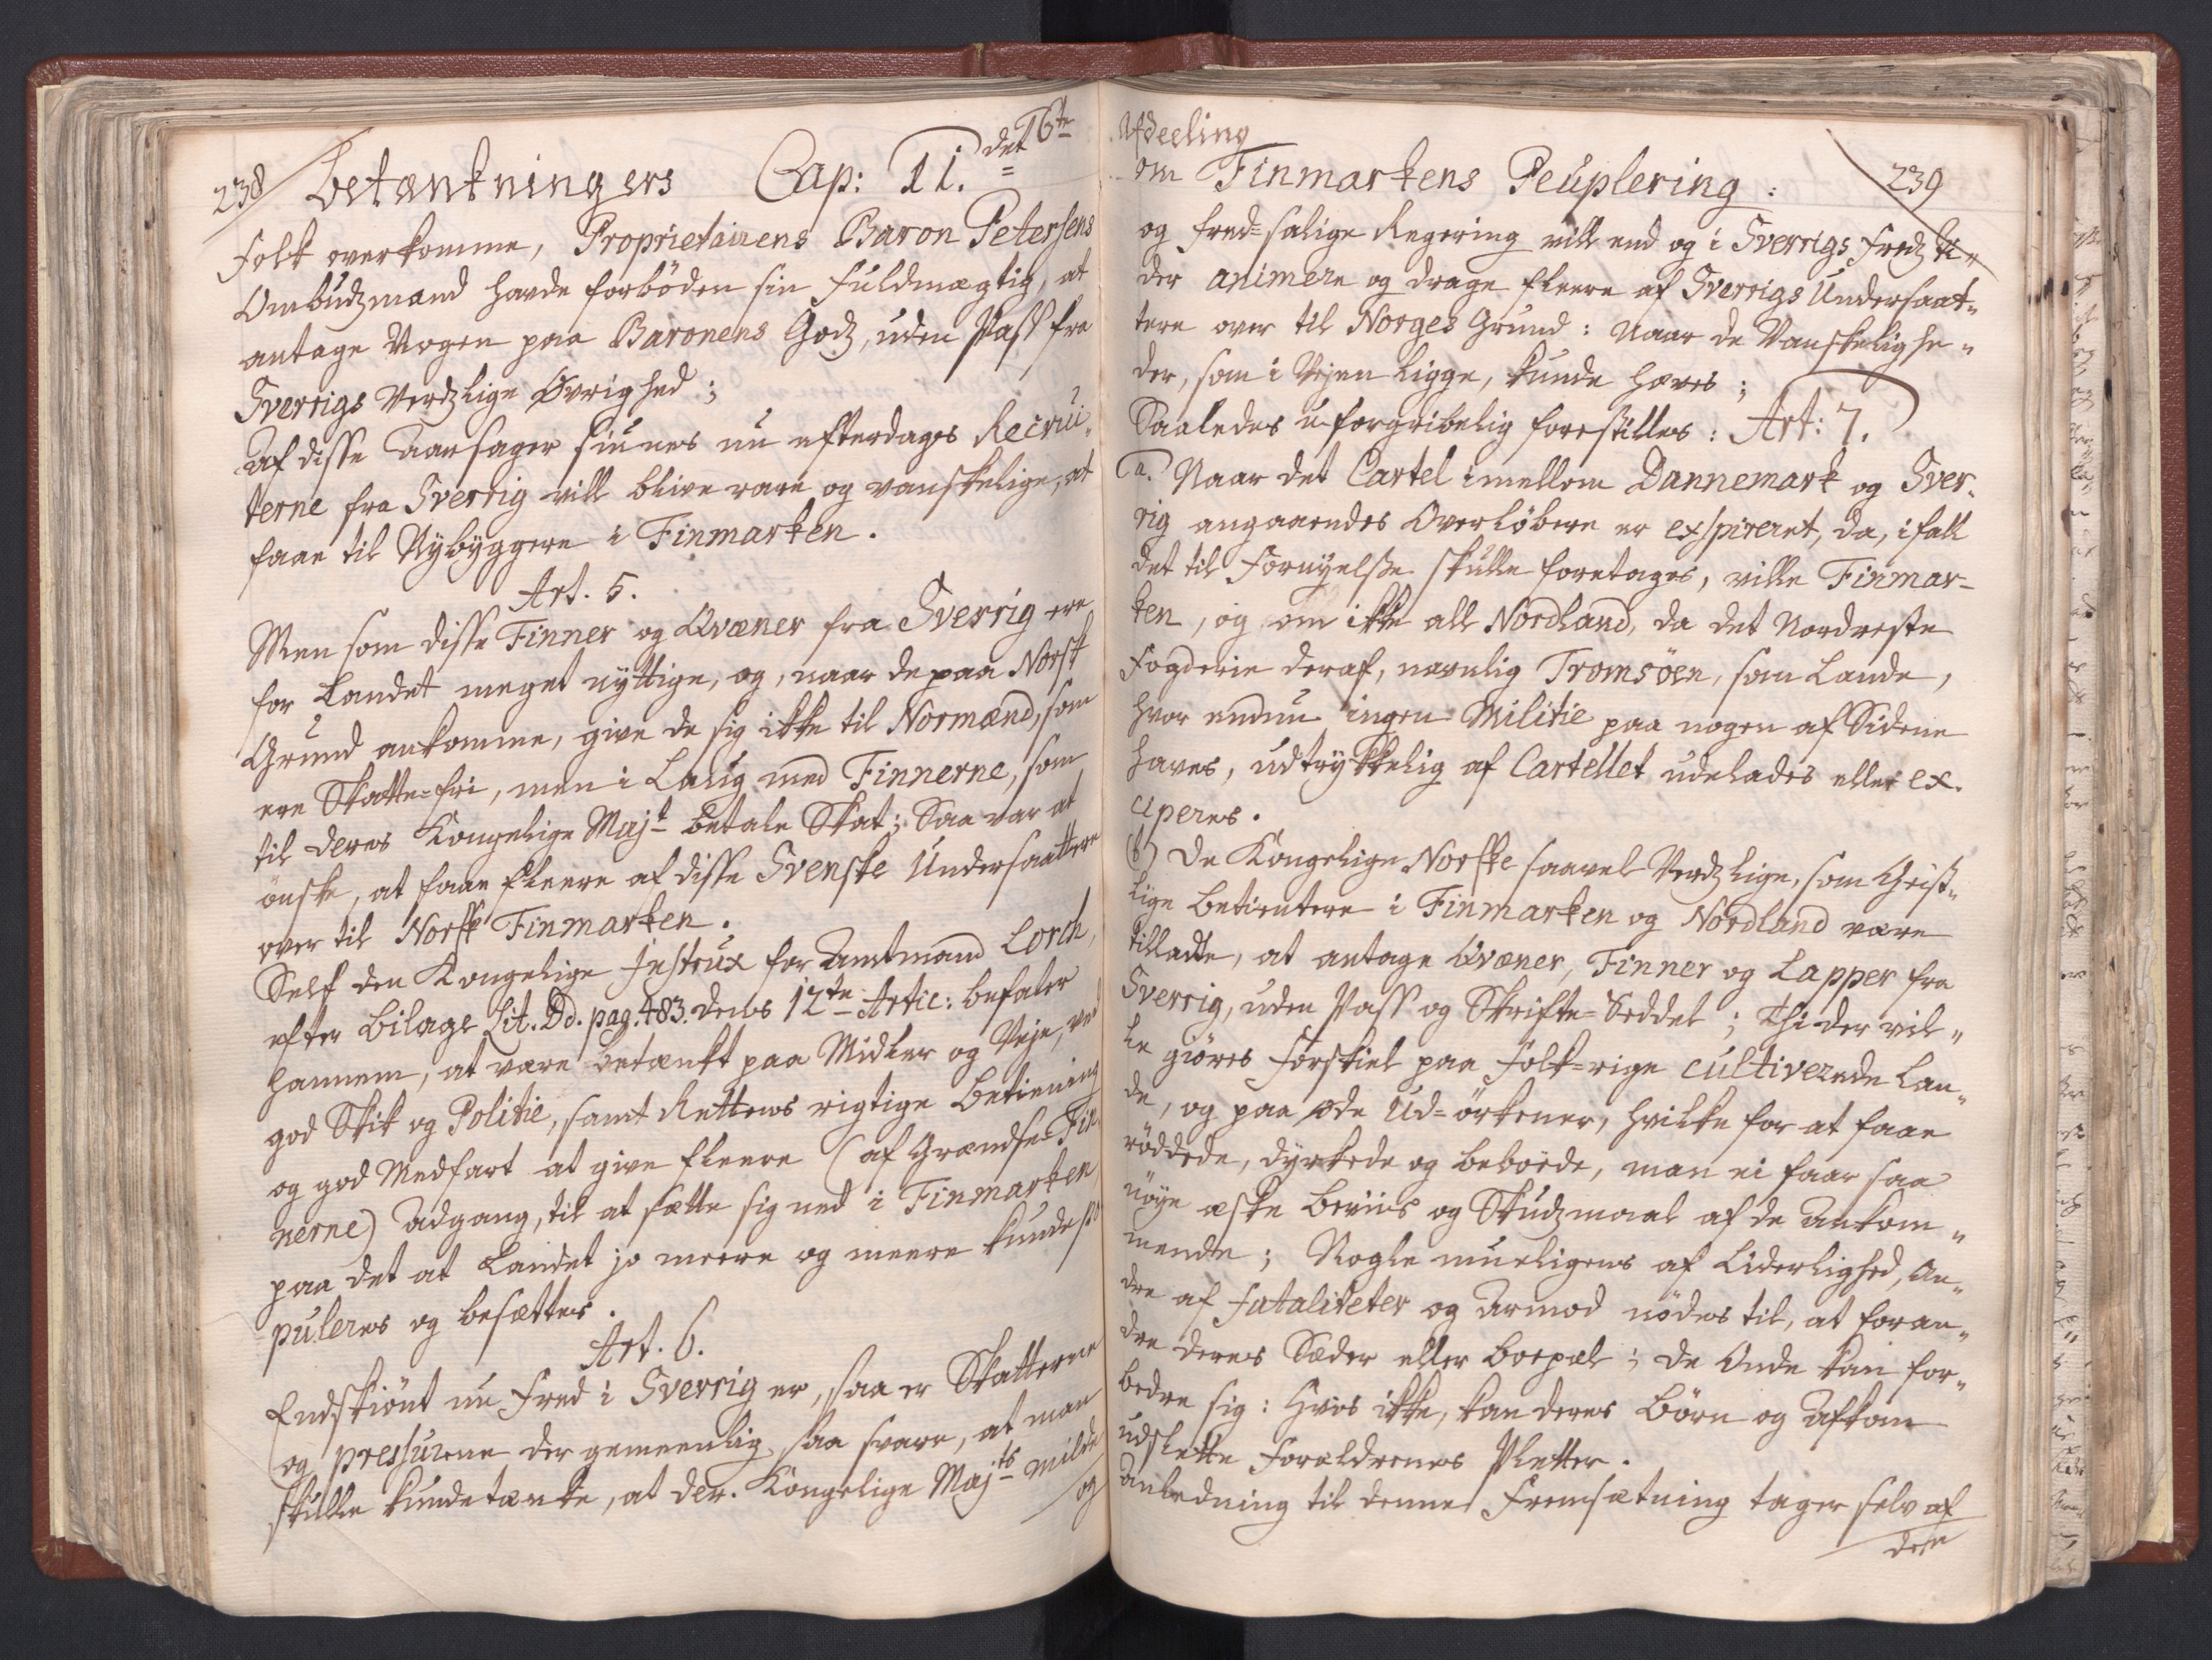 238 Betænkningers Cap: 11. det 6te
Folk overkomme, Proprietairens Baron Petersens
Ombudzmand havde forböden sin Fuldmægtig, at
antage Nogen paa Baronens Godz, uden Pass fra
Sverrigs Verdzlige Øvrighed;
Af disse Aarsager siunes nu efterdags Recrui-
terne fra Sverrig vill blive rare og vanskelige, at
faae til Nybyggere i Finmarken.
Art. 5.
Men som disse Finner og Qvæner fra Sverrig ere
for Landet meget nyttige, og, naar de paa Norsk
Grund ankomme, give de sig ikke til Normænd, som
ere Skatte-fri, men i Laug med Finnerne, som
til deres Kongelige Majt betale Skat; Saa var at
önske, at faae fleere af disse Svenske Undersaattere
over til Norsk Finmarken.
Self den Kongelige Instrux for Amtmand Lorch,
efter Bilage Lit. Dd. pag. 483. dens 12te Artic: befaler
hannem, at være betænkt paa Midler og Veje, ved
god Skik og Politie, samt Rettens rigtige Betiening
og god Medfart at give fleere (af Grændse-Fin-
nerne) Adgang, til at sætte sig ned i Finmarken,
paa det at Landet jo meere og meere kunde po-
puleres og besættes.
Art. 6.
Endskiönt nu Fred i Sverrig er, saa er Skatterne
og pressurene der gemeenlig saa svare, at man
skulle kunde tænke, at der Kongelige Majts milde
og
Afdeeling
om Finmarkens Peuplering: 239
og fred-salige Regering vill end og i Sverrigs Fredz ti-
der animere og drage fleere af Sverrigs Undersaat-
tere over til Norges Grund: Naar de Vanskelighe-
der, som i Vejen ligge, kunde hæves;
Saaledes uforgribelig forestilles: Art: 7.
a. Naar det Cartel imellem Dannemark og Sver-
rig angaaendes Overlöbere er expireret, da, ifall
det til Fornyelsse skulle foretages, ville Finmar-
ken, og om ikke all Nordland, da det Nordreste
Fogderie deraf, nævnlig Tromsöen, som Lande,
hvor endnu ingen Militie paa nogen af Siderne
haves, udtrykkelig af Cartellet udelades eller ex-
ciperes.
b) De Kongelige Norske saavel Verdzlige, som Geist-
lige Betientere i Finmarken og Nordland være
tilladte, at antage Qvæner, Finner og Lapper fra
Sverrig, uden Pass og Skrifte-Seddel; Thi der vil-
le giöres Forskiel paa folk-rige cultiverede Lan-
de, og paa øde Ud-örkener, hvilke for at faae
röddede, dyrkede og beboede, man ei faar saa
nöye æske Beviis og Skudzmaal af de Ankom-
mende; Nogle mueligens af Liderlighed, An-
dre af fataliteter og Armod nödes til, at foran-
dre deres Sæder eller Boepæl; De Onde kan for-
bedre sig: Hvis ikke, kan deres Börn og Afkom
udslette Forældrenes Pletter.
Anledning til denne Fremsætning tager selv af
den